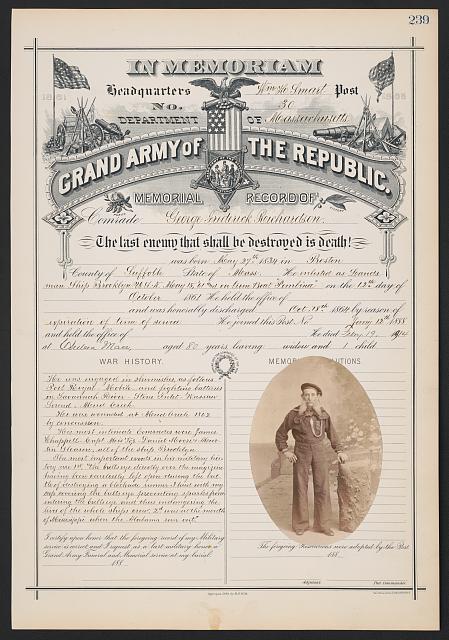 239
IN MEMORIAM
Headquarters Wm H. Smart Post
No. 30
1861
DEPARTMENT OF Massachusetts
GRAND ARMY OF THE REPUBLIC.
MEMORIAL RECORD OF
Comrade George Frederick Richardson.
The last enemy that shall be destroyed is death!
was born May 27th 1834 in Boston
County of Suffolk State of Mass. He enlisted as Lands
man Ship Brooklyn on the 12th day of
October 1861 He held the office of
and was honorably discharged Oct. 18th 1864 by reason of
expiration of term of service He joined this Post No Jany 12th 1888
and held the office of He died 1914
at Chelsea Mass, aged 80 years leaving widow and 1 child
WAR HISTORY.
MEMORIAL RESOLUTIONS
He was engaged in skirmishes as follows
Port Royal, Mobile and fighting batteries
in Savannah River, Stone Inlet, Wassaw
Sound,
He was wounded at 1862
by concussion.
His most intimate Comrades were James
Chappell, Capt. Daniel Moore,
Gleason, all of the Ship Brooklyn
The most important events in his military his-
tory are 1st "The bullseye directly over the magazine
having been carelessly left open during the bat-
tle of destroying a blockade runner. I hid with my
cap covering the bullseye preventing sparks from
entering the bullseye and thus endangering the
lives of the whole ships crew. 2nd was at the mouth
of Mississippi when the Alabama ran out."
I certify upon honor that the foregoing record of my Military
service is correct and I request as a last military honor a
Grand Army Funeral and Memorial service at my burial.
188
The foregoing Resolutions were adopted by this Post
188
Adjutant
Post Commander